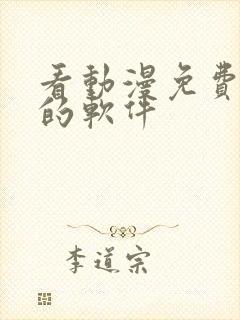 看動漫免費
的軟件
李道宗